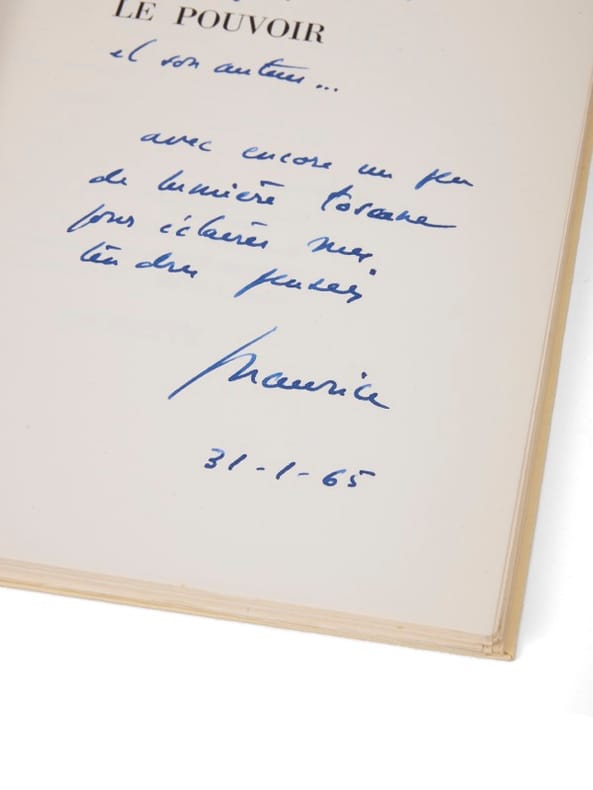 LE POUVOIR
et son auteur...
avec encore un peu
de lumière toscane
pour éclairer mes
tendres pensées
Maurice
31-1-65